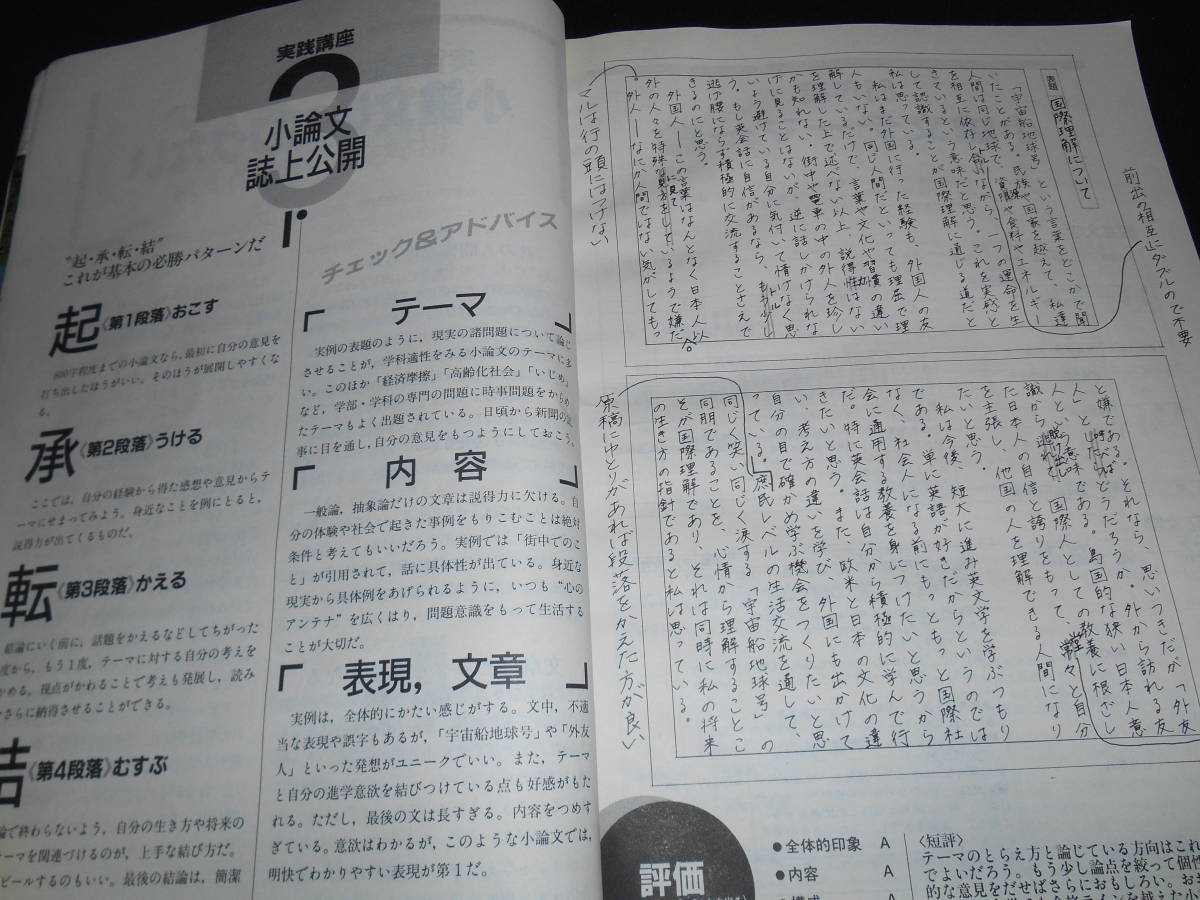 実践講座
3
小論文
誌上公開
“起・承・転・結”
これが基本の必勝パターンだ
起《第1段落》おこす
800字程度までの小論文なら,最初に自分の意見を
打ち出したほうがいい。そのほうが展開しやすくな
る。
承《第2段落》うける
ここでは,自分の経験から得た感想や意見からテ
ーマにせまってみよう。身近なことを例にとると,
説得力が出てくるものだ。
転《第3段落》かえる
結論にいく前に,話題をかえるなどしてちがった
度から,もう1度,テーマに対する自分の考えを
かめる。視点がかわることで考えも発展し,読み
さらに納得させることができる。
結《第4段落》むすぶ
論で終わらないよう,自分の生き方や将来の
ーマを関連づけるのが,上手な結び方だ。
ピールするのもいい。最後の結論は,簡潔
チェック&アドバイス
「テーマ」
実例の表題のように,現実の諸問題について論じ
させることが,学科適性をみる小論文のテーマに多
い。このほか「経済摩擦」「高齢化社会」「いじめ」
など,学部・学科の専門の問題に時事問題をからめ
たテーマもよく出題されている。日頃から新聞の
事に目を通し,自分の意見をもつようにしておこう。
「内容」
一般論,抽象論だけの文章は説得力に欠ける。自
分の体験や社会で起きた事例をもりこむことは絶対
条件と考えてもいいだろう。実例では「街中でのこ
と」が引用されて,話に具体性が出ている。身近な
現実から具体例をあげられるように,いつも“心の
アンテナ”を広くはり,問題意識をもって生活する
ことが大切だ。
「表現,文章」
実例は,全体的にかたい感じがする。文中,不適
当な表現や誤字もあるが,「宇宙船地球号」や「外友
人」といった発想がユニークでいい。また,テーマ
と自分の進学意欲を結びつけている点も好感がもた
れる。ただし,最後の文は長すぎる。内容をつめす
ぎている。意欲はわかるが,このような小論文では,
明快でわかりやすい表現が第1だ。
表題 国際理解について
「宇宙船地球号」という言葉をどこかで聞
いたことがある。民族や国家を越えて、私達
人間は同じ地球で、資源や食料やエネルギー
を相互に依存し合いながら、一つの運命を生
きているという意味だと思う。これを実感と
して認識することが国際理解に通じる道だと
私は思っている。
私はまだ外国に行った経験も、外国人の友
人もいない。同じ人間だといっても理屈で理
解しているだけで、言葉や文化や習慣の違い
を理解した上で述べない以上、説得性はない
かも知れない。街中や電車の中の外人を珍し
げに見ることはないが、逆に話しかけられな
いよう避けている自分に気付いて情けなく思
う。もし英会話に自信があるなら、もう少し
逃げ腰にならず積極的に交流することさえで
きるのにと思う。
外国人――この言葉はなんとなく日本人以
外の人々を特殊な見方をしているようで嫌だ
。外人――なにか人間ではない気がしても
と嫌である。それなら、思いつきだが「外友
人」と呼べばどうだろうか。外から訪れる友
人という意味である。島国的な狭い日本人意
識から脱け出し、国際人としての教養に根ざし
た日本人の自信と誇りをもって、堂々と自分
を主張し、他国の人を理解できる人間になり
たいと思う。
私は今後、短大に進み英文学を学ぶつもり
である。単に英語が好きだからというのでは
なく、社会人になる前にもっともっと国際社
会に通用する教養を身につけたいと思うから
だ。特に英会話は自分から積極的に学んで行
きたいと思う。また、欧米と日本の文化の違
い、考え方の違いを学び、外国にも出かけて
自分の目で確かめ学ぶ機会をつくりたいと思
っている。庶民レベルの生活交流を通して、
同じく笑い同じく涙する「宇宙船地球号」の
同朋であることを、心情から理解することこ
そが国際理解であり、それは同時に私の将来
の生き方の指針であると私は思っている。
前出の相互にとダブルので不要
マルは行の頭にはつけない
原稿にゆとりがあれば段落をかえた方が良い
評価
●全体的印象 A
●内容 A
●構成
〈短評〉
テーマのとらえ方と論じている方向はこれ
でよいだろう。もう少し論点を絞って個性
的な意見をだせばさらにおもしろい。